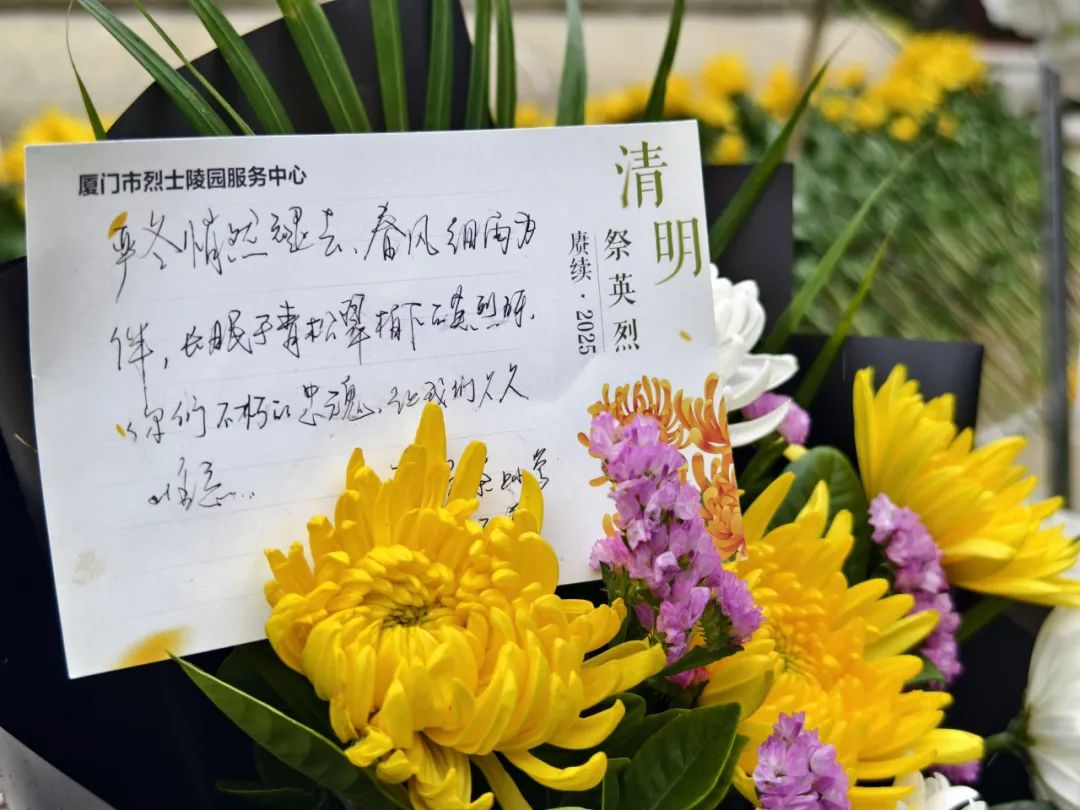 厦门市烈士陵园服务中心
清明
祭英烈
赓续·2025
严冬悄然褪去、春风细雨为
伴，长眠于青松翠柏下的英烈呀、
你们不朽的忠魂、让我们久久
难忘…